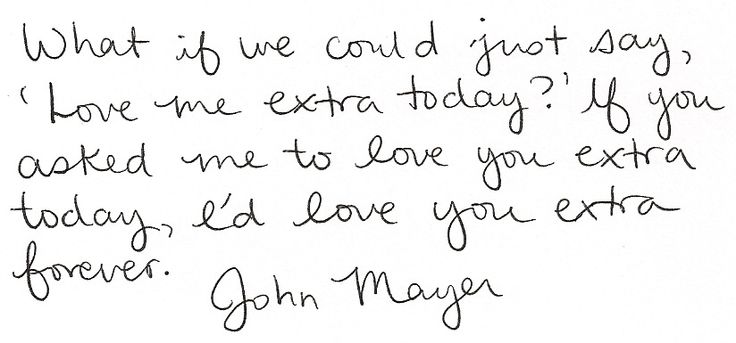 What if we could just say,
'Love me extra today?' If you
asked me to love you extra
today, I'd love you extra
forever.
John Mayer